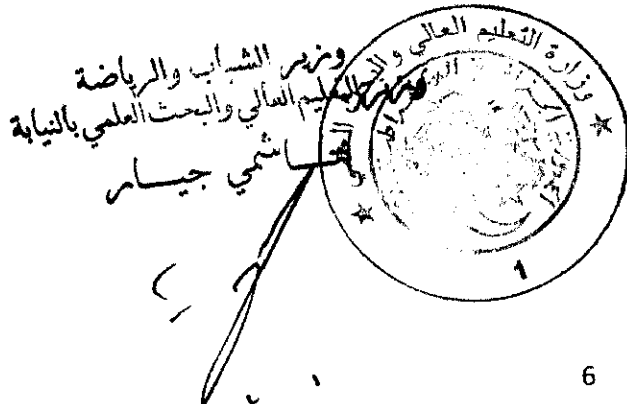 وزير الشباب والرياضة
وزير التعليم العالي والبحث العلمي بالنيابة
الهاشمي جيار
وزارة التعليم العالي و
1
6